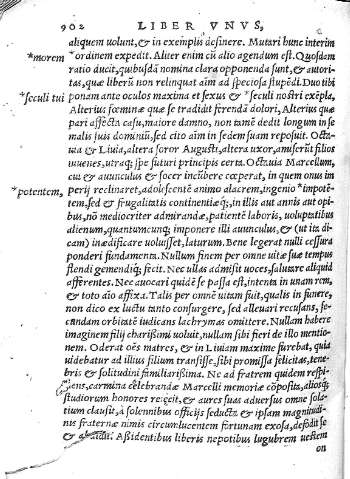 902 LIBER VNVS,
aliquem uolunt, & in exemplis desinere. Mutari hunc interim
*morem *ordinem expedit. Aliter enim cū alio agendum est. Quosdam
ratio ducit, quibusdā nomina clara opponenda sunt, & autori-
tas, quæ liberū non relinquat aīm ad speciosa stupēdi. Duo tibi
*seculi tui ponam ante oculos maxima et sexus & *seculi nostri exēpla,
Alterius fœminæ quæ se tradidit ferendā dolori, Alterius quæ
pari affecta casu, maiore damno, non tamē dedit longum in se
malis suis dominiū, sed cito aīm in sedem suam reposuit. Octa-
uia & Liuia, altera soror Augusti, altera uxor, amiserūt filios
iuuenes, utraq; spe futuri principis certa. Octauia Marcellum,
cui & auunculus & socer incūbere cœperat, in quem onus im
*potentem, perij reclinaret, adolescentē animo alacrem, ingenio *impotē-
tem, sed & frugalitatis continentiæq́;, in illis aut annis aut opi-
bus, nō mediocriter admirandæ, patientē laboris, uoluptatibus
alienum, quantumcunq; imponere illi auunculus, & (ut ita di-
cam) inædificare uoluisset, laturum. Bene legerat nulli cessura
ponderi fundamenta. Nullum finem per omne uitæ suæ tempus
flendi gemendiq́; fecit. Nec ullas admisit uoces, salutare aliquid
afferentes. Nec auocari quidē se passa est, intenta in unam rem,
& toto aīo affixa. Talis per omnē uitam fuit, qualis in funere,
non dico ex luctu tanto consurgere, sed alleuari recusans, se-
cundam orbitatē iudicans lachrymas omittere. Nullam habere
imaginem filij charissimi uoluit, nullam sibi fieri de illo mentio-
nem. Oderat oēs matres, & in Liuiam maxime furebat, quia
uidebatur ad illius filium transisse, sibi promissa felicitas, tene-
bris & solitudini familiarissima. Ne ad fratrem quidem respi-
ciens, carmina celebrandæ Marcelli memoriæ cōposita, aliosq;
studiorum honores reiecit, & aures suas aduersus omne sola-
tium clausit, à solennibus officijs seducta & ipsam magnitudi-
nis fraternæ nimis circumlucentem fortunam exosa, defodit se
& abdidit. Assidentibus liberis nepotibus lugubrem uestem
on